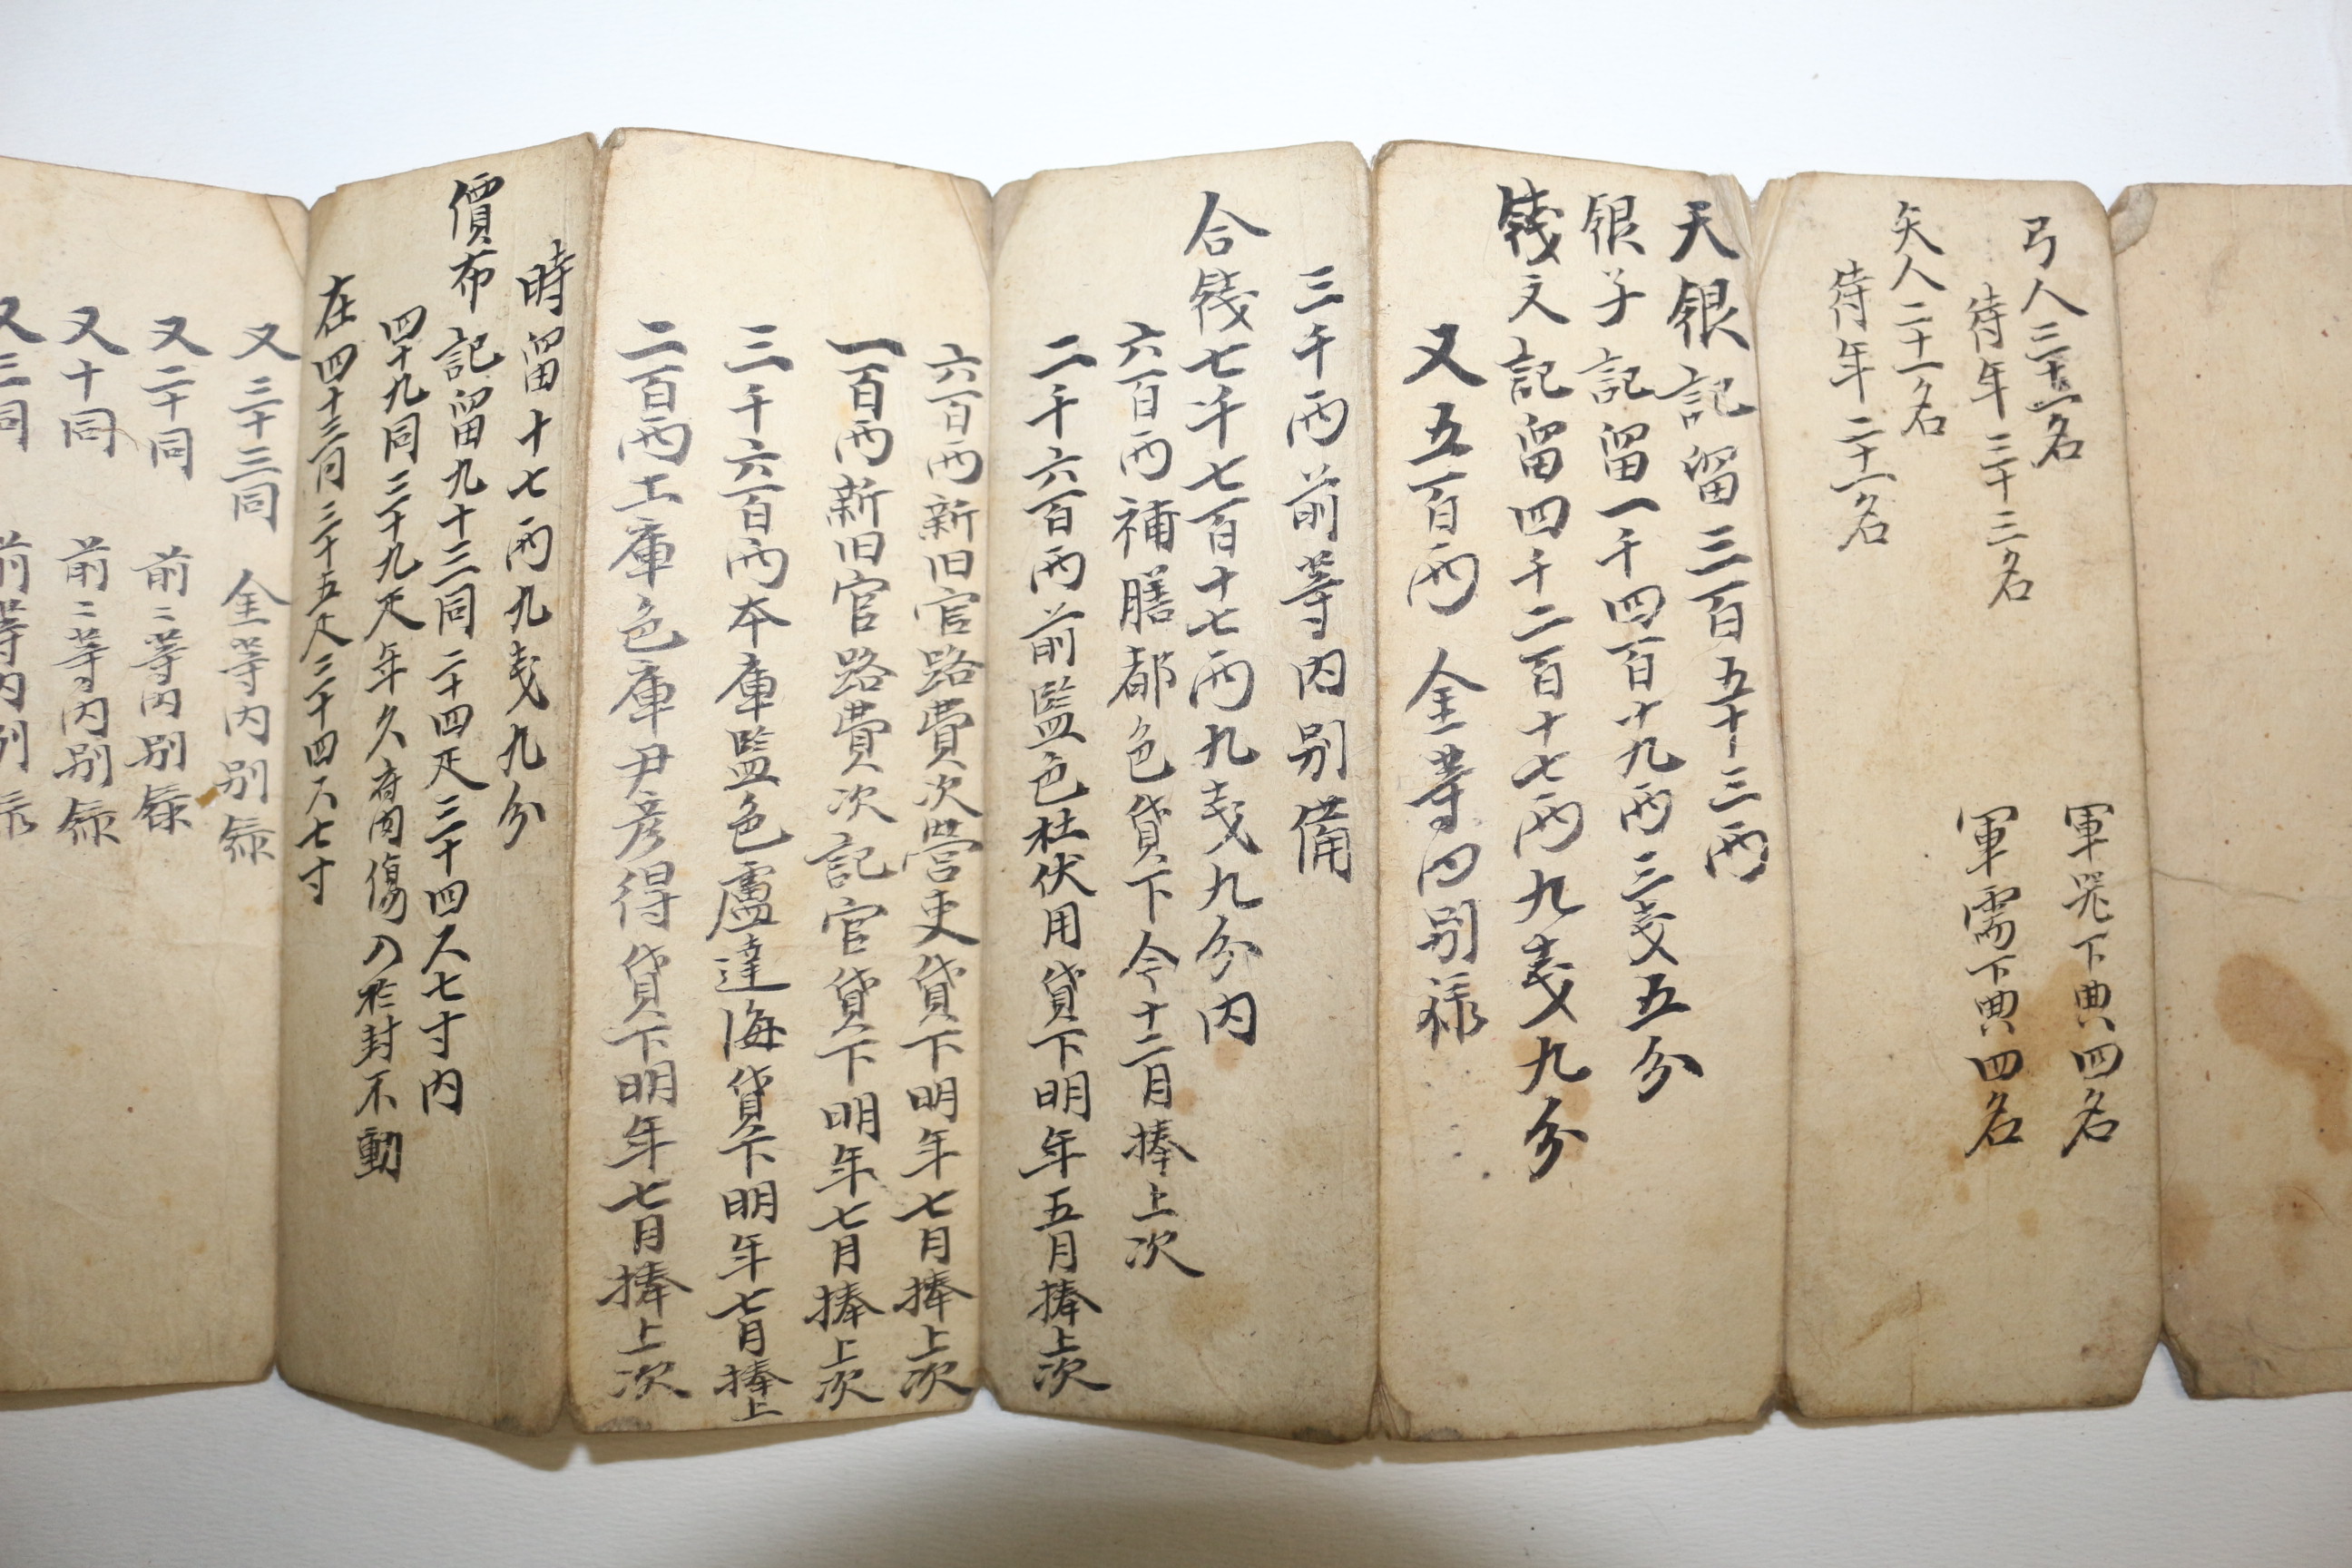 弓人三十三名
待年三十三名
軍器下典四名
矢人二十一名
待年二十一名
軍需下典四名
天銀記留三百五十三両
銀子記留一千四百十九両三戔五分
錢文記留四千二百十七両九戔九分
又五百両 金等内別
三千両前等内別備
合錢七千七百十七両九戔九分内
六百両補膳都色貸下今十二月捧上次
二千六百両前監色杜伏用貸下明年五月捧上次
六百両新旧官路費次營吏貸下明年七月捧上次
一百両新旧官路費次記官貸下明年七月捧上次
三千六百両本庫監色盧達海貸下明年七月捧上
二百両工庫色庫尹彦得貸下明年七月捧上次
時留十七両九戔九分
價布記留九十三同二十四疋三十四尺七寸内
四十九同三十九疋年久腐傷入於封不動
在四十三同三十五疋三十四尺七寸
又三十三同 金等内別
又二十同 前〻等内別
又十同 前〻等内別
又三同 前等内別